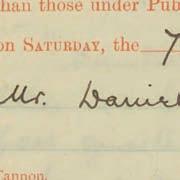 han those under Pub
on SATURDAY, the 7
Mr. Daniel
Cannon.